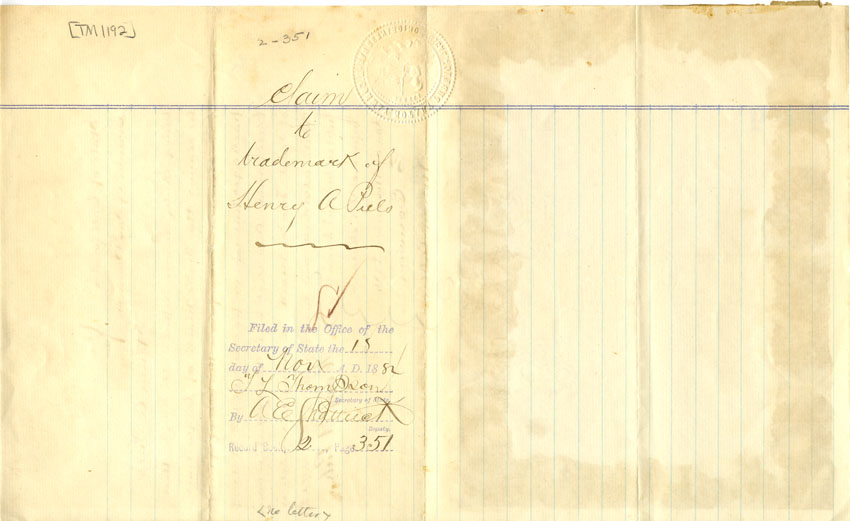 [TM 1192]
2-351
Claim
to
trademark of
Henry A Piels
Filed in the Office of the
Secretary of State the 18
day of Nov A. D. 188
T L Thompson
Secretary of State
By A E Shattuck
Deputy.
Record Book 2 Page 351
<no letter>